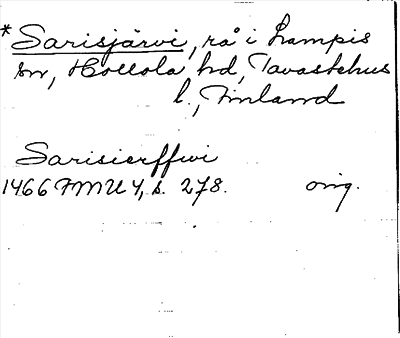 * Sarisjärvi, rå i Lampis
sn, Hollola hd, Tavastehus
l., Finland
Sarisierffwi
1466 FMU 4, s. 278. orig.